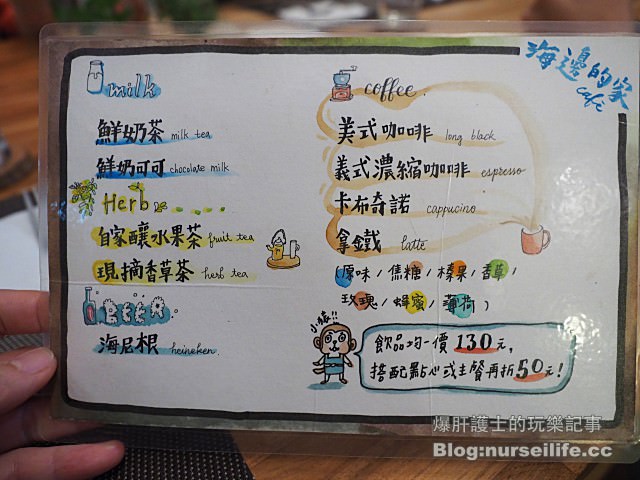 海邊的家
cafe
milk
鮮奶茶 milk tea
鮮奶可可 chocolate milk
Herb
自家釀水果茶 fruit tea
現摘香草茶 herb tea
BEER
海尼根 heineken
coffee
美式咖啡 long black
義式濃縮咖啡 espresso
卡布奇諾 cappucino
拿鐵 latte
(原味/焦糖/榛果/香草/
玫瑰/蜂蜜/薄荷)
小猿!!
飲品均一價130元,
搭配點心或主餐再折50元!
爆肝護士的玩樂記事
Blog:nurseilife.cc